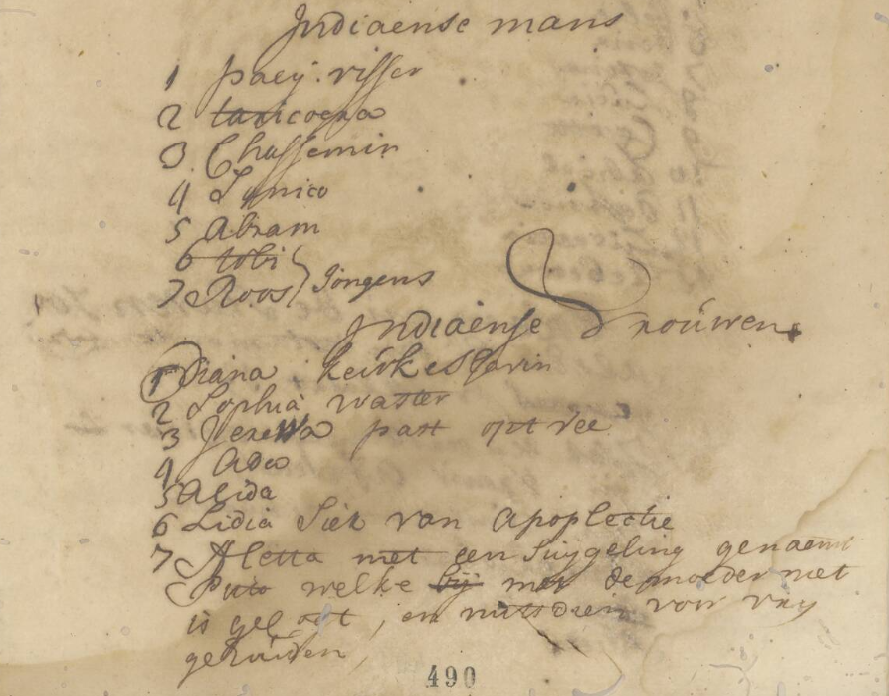 Indiaense mans
1 paeij visser
2 tanicoena
3 Chassemin
4 Janico
5 Abram
6 tobi
7 Roos } Jongens
Indiaense Vrouwen
1 Diana keukeslavin
2 Sophia waster
3 past opt vee
4
5 Alida
6 Lidia Siek van apoplectie
7 Aletta met een Suijgeling genaemt
Puto welke bij met de moeder niet
is gekogt, en mitsdien voor vrij
gehouden,
490